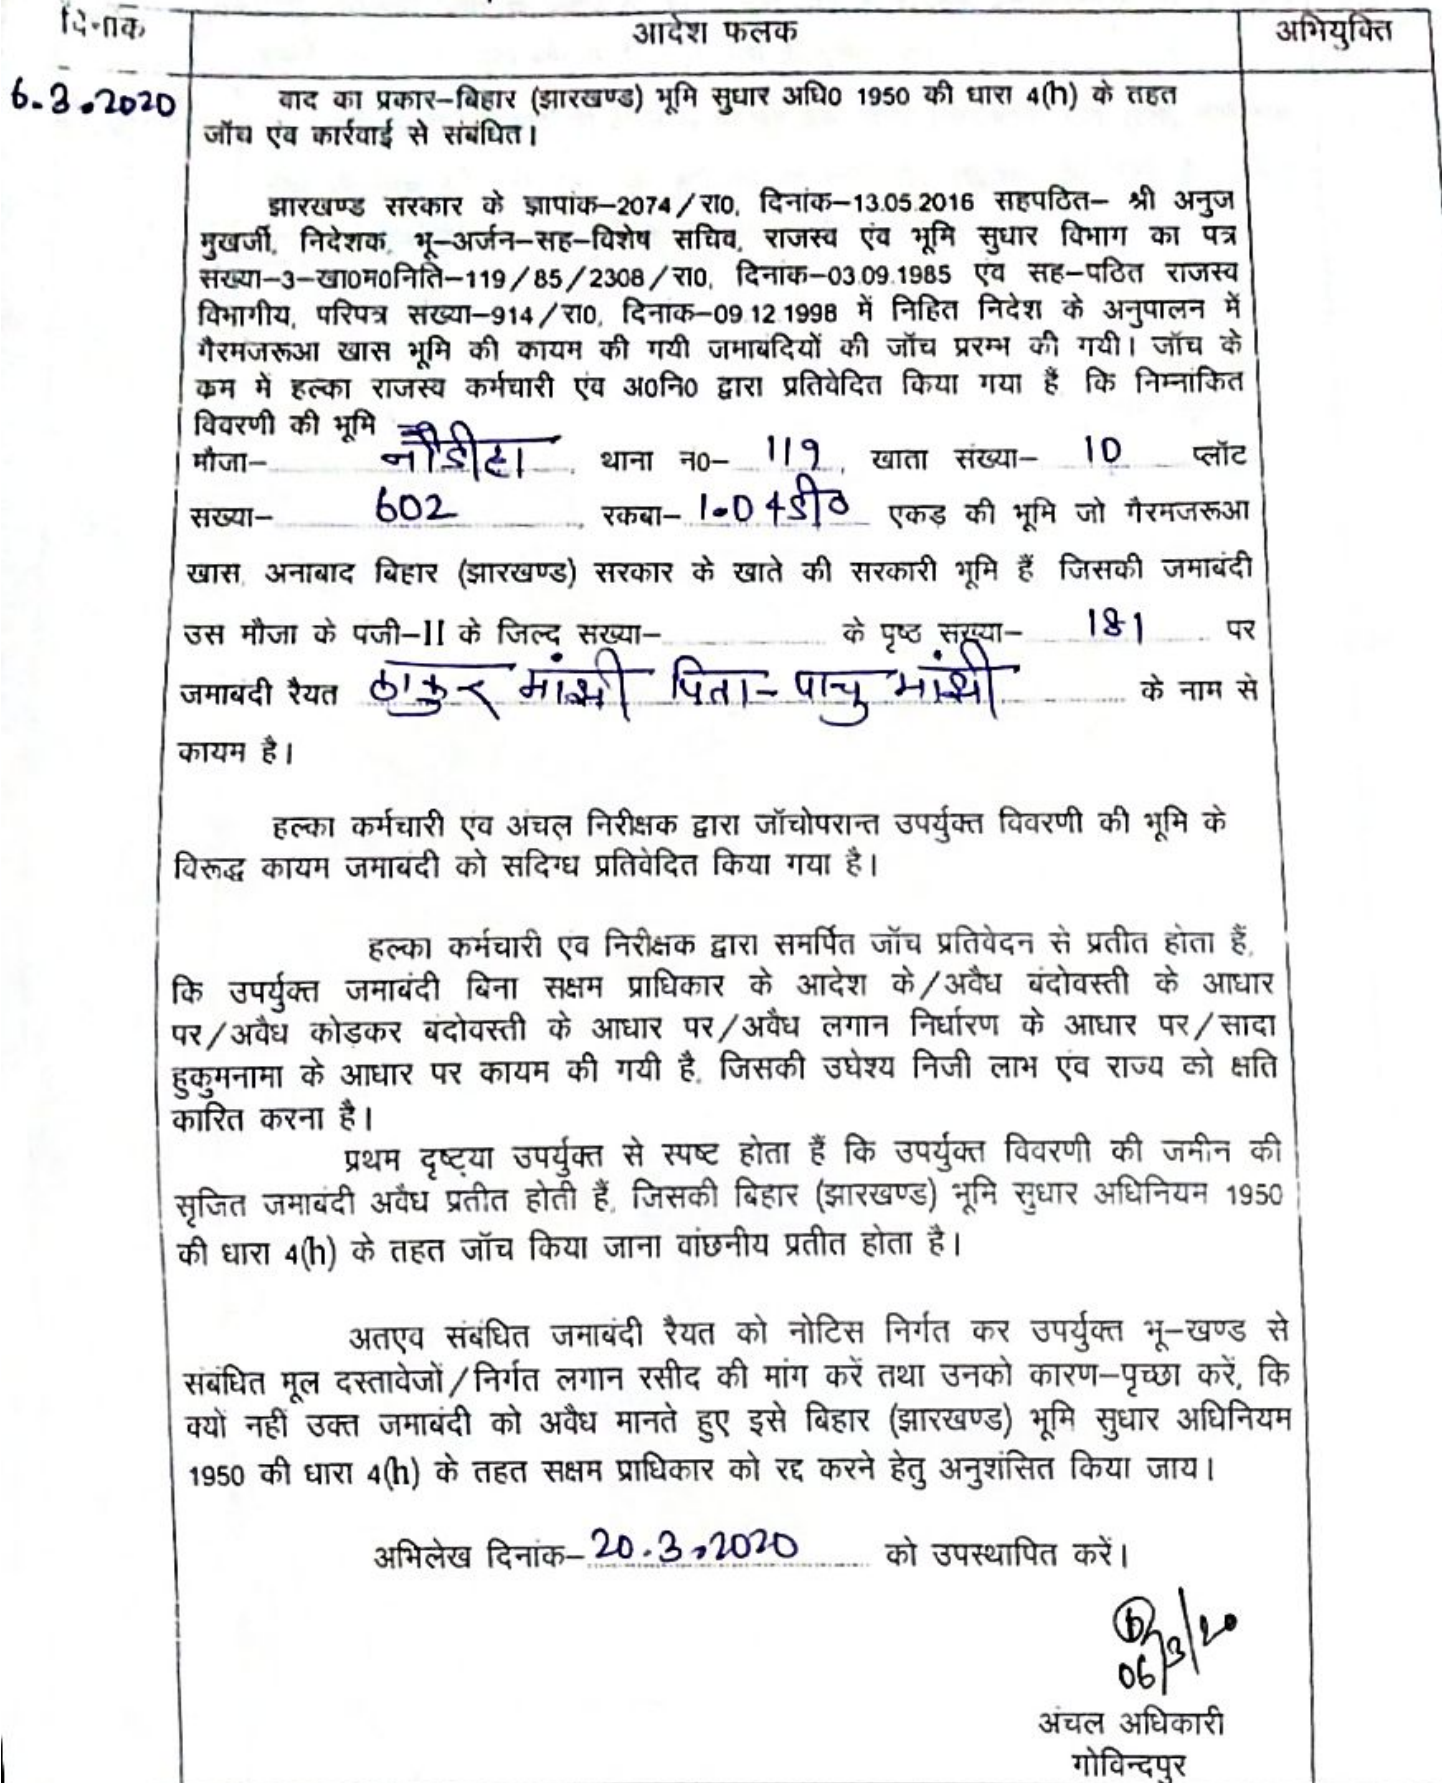 दिनांक आदेश फलक अभियुक्ति
6.3.2020 वाद का प्रकार–बिहार (झारखण्ड) भूमि सुधार अधि0 1950 की धारा 4(h) के तहत
जॉच एंव कार्रवाई से संबंधित।
झारखण्ड सरकार के ज्ञापांक–2074/रा0, दिनांक–13.05.2016 सहपठित– श्री अनुज
मुखर्जी, निदेशक, भू–अर्जन–सह–विशेष सचिव, राजस्व एंव भूमि सुधार विभाग का पत्र
संख्या–3–खा0म0निति–119/85/2308/रा0, दिनांक–03.09.1985 एंव सह–पठित राजस्व
विभागीय, परिपत्र संख्या–914/रा0, दिनांक–09.12.1998 में निहित निदेश के अनुपालन में
गैरमजरूआ खास भूमि की कायम की गयी जमाबंदियों की जॉच प्ररम्भ की गयी। जॉच के
कम में हल्का राजस्व कर्मचारी एंव अ0नि0 द्वारा प्रतिवेदित किया गया हैं कि निम्नांकित
विवरणी की भूमि
मौजा– नौडीहा, थाना न0– 119, खाता संख्या– 10 प्लॉट
संख्या– 602, रकबा– 1.04डी0 एकड़ की भूमि जो गैरमजरूआ
खास, अनाबाद बिहार (झारखण्ड) सरकार के खाते की सरकारी भूमि हैं जिसकी जमाबंदी
उस मौजा के पंजी–II के जिल्द संख्या– के पृष्ठ संख्या– 181 पर
जमाबंदी रैयत ठाकुर मांझी पिता– पाचु मांझी के नाम से
कायम है।
हल्का कर्मचारी एंव अंचल निरीक्षक द्वारा जॉचोपरान्त उपर्युक्त विवरणी की भूमि के
विरूद्ध कायम जमाबंदी को संदिग्ध प्रतिवेदित किया गया है।
हल्का कर्मचारी एंव निरीक्षक द्वारा समर्पित जॉच प्रतिवेदन से प्रतीत होता हैं,
कि उपर्युक्त जमाबंदी बिना सक्षम प्राधिकार के आदेश के/अवैध बंदोवस्ती के आधार
पर/अवैध कोड़कर बंदोवस्ती के आधार पर/अवैध लगान निर्धारण के आधार पर/सादा
हुकुमनामा के आधार पर कायम की गयी है, जिसकी उघेश्य निजी लाभ एंव राज्य को क्षति
कारित करना है।
प्रथम दृष्टया उपर्युक्त से स्पष्ट होता हैं कि उपर्युक्त विवरणी की जमीन की
सृजित जमाबंदी अवैध प्रतीत होती हैं, जिसकी बिहार (झारखण्ड) भूमि सुधार अधिनियम 1950
की धारा 4(h) के तहत जॉच किया जाना वांछनीय प्रतीत होता है।
अतएव संबंधित जमाबंदी रैयत को नोटिस निर्गत कर उपर्युक्त भू–खण्ड से
संबंधित मूल दस्तावेजों/निर्गत लगान रसीद की मांग करें तथा उनको कारण–पृच्छा करें, कि
क्यों नहीं उक्त जमाबंदी को अवैध मानते हुए इसे बिहार (झारखण्ड) भूमि सुधार अधिनियम
1950 की धारा 4(h) के तहत सक्षम प्राधिकार को रद्द करने हेतु अनुशंसित किया जाय।
अभिलेख दिनांक– 20.3.2020 को उपस्थापित करें।
06/3/20
अंचल अधिकारी
गोविन्दपुर